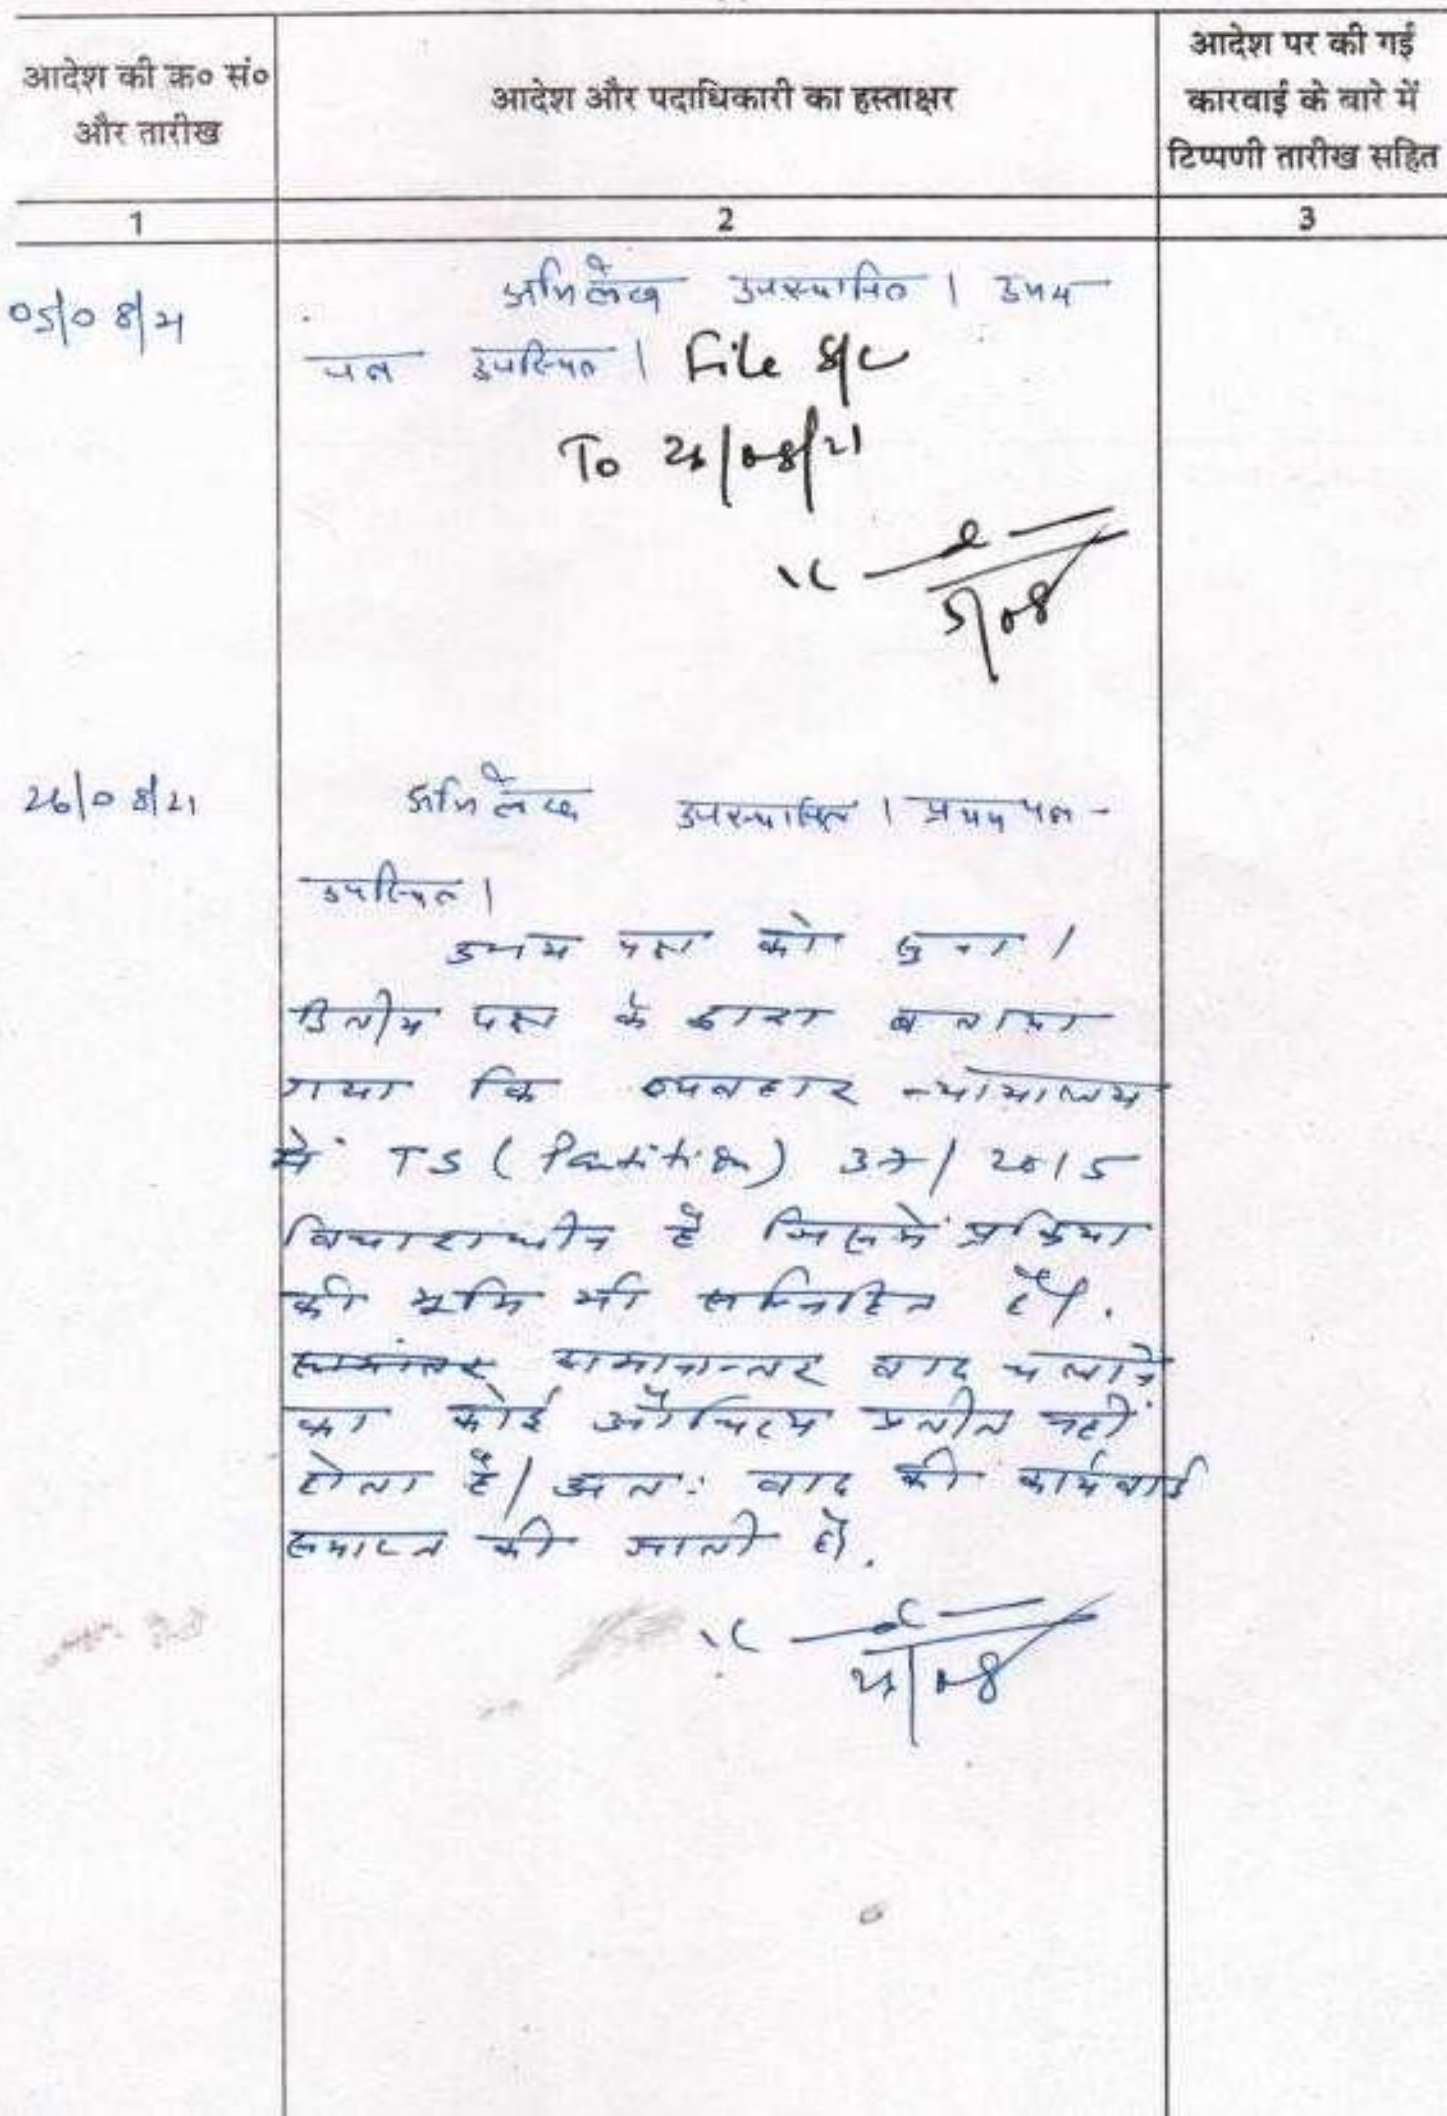 आदेश की क्र० सं०
और तारीख
आदेश और पदाधिकारी का हस्ताक्षर
आदेश पर की गई
कारवाई के बारे में
टिप्पणी तारीख सहित
1
2
3
05/08/21
अभिलेख उपस्थापित । उभय
पक्ष उपस्थित । File
To 26/08/21
5/08
26/08/21
अभिलेख उपस्थापित । प्रथम पक्ष -
उपस्थित ।
उभय पक्ष को सुना ।
द्वितीय पक्ष के द्वारा बताया
गया कि व्यवहार न्यायालय
में TS (Partition) 37/2015
विचाराधीन है जिसमें प्रक्रिया
की भूमि भी सन्निहित है।
समानान्तर वाद चलाने
का कोई औचित्य प्रतीत नहीं
होता है। अतः वाद की कार्यवाई
समाप्त की जाती है.
26/08